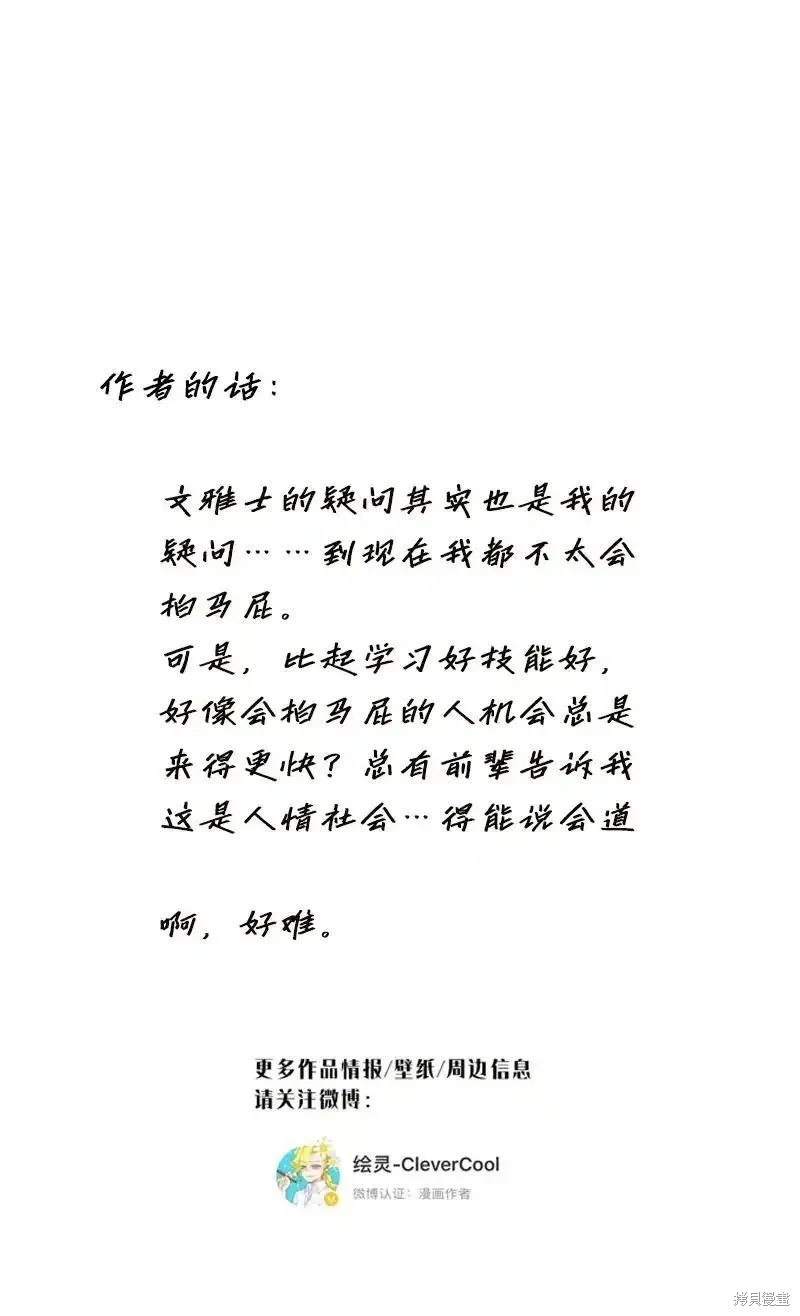 作者的话：
文雅士的疑问其实也是我的
疑问……到现在我都不太会
拍马屁。
可是，比起学习好技能好，
好像会拍马屁的人机会总是
来得更快？总有前辈告诉我
这是人情社会…得能说会道
啊，好难。
更多作品情报/壁纸/周边信息
请关注微博：
绘灵-CleverCool
微博认证：漫画作者
拷貝漫畫